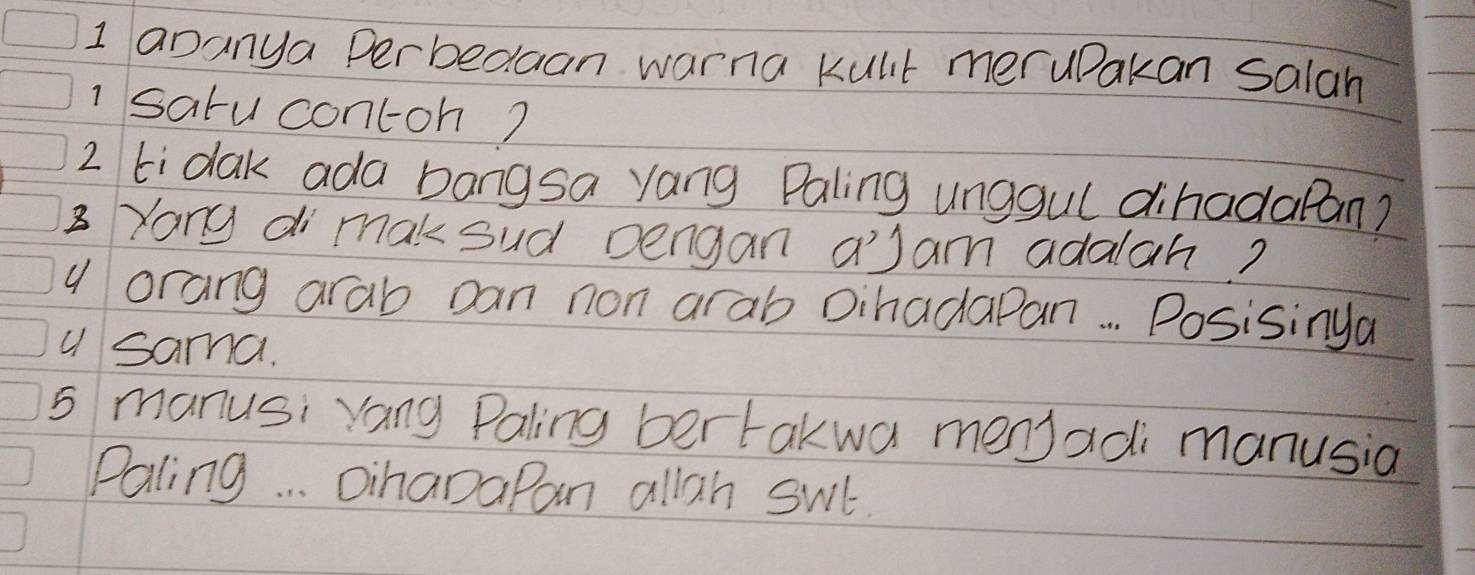 1 aDanya Perbedaan warna kulit meruPakan salah
1 satu contoh ?
2 tidak ada bangsa yang Paling unggul dihadaPan?
3 Yang di maksud Dengan a'Jam adalah ?
4 orang arab Dan non arab DihadaPan ... Posisinya
4 sama.
5 manusi yang Paling bertakwa menJadi manusia
Paling ... DihaDaPan allah swt.